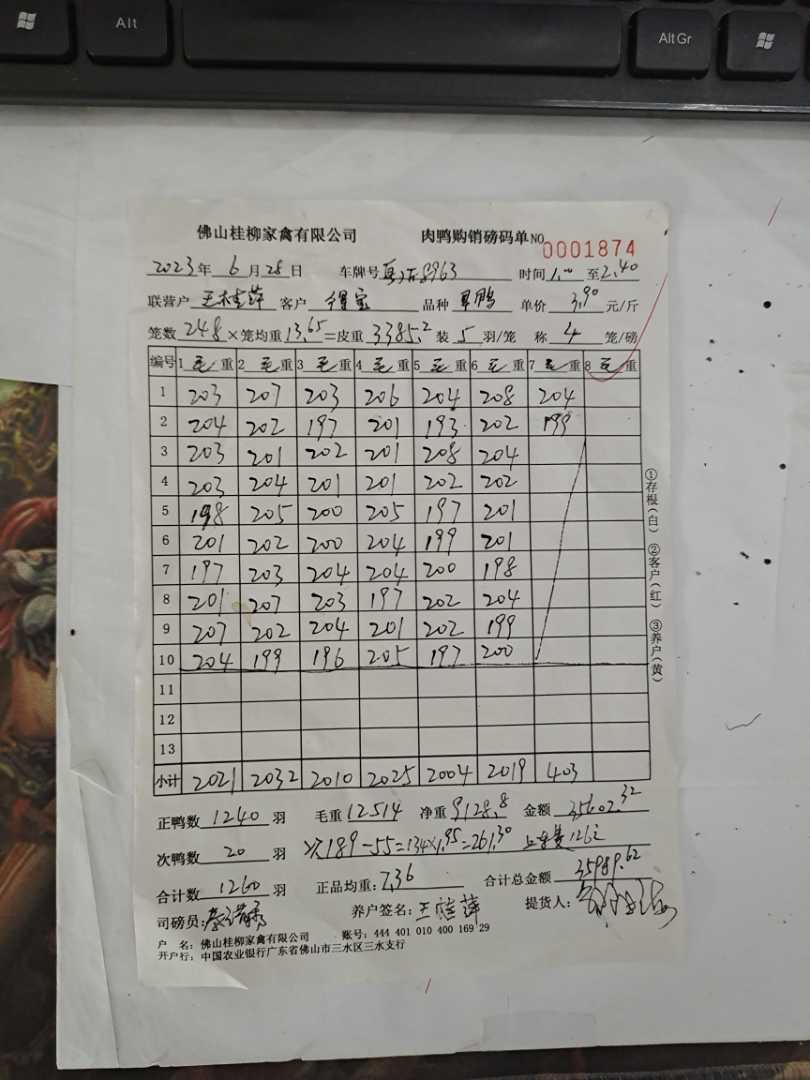 Alt
Alt Gr
佛山桂柳家禽有限公司 肉鸭购销磅码单 NO 0001874
2023年 6月28日 车牌号 8963 时间 1.00 至 2.40
联营户 王桂萍 客户 得宝 品种 鸭 单价 3.90 元/斤
笼数 248 ×笼均重 13.65 =皮重 3385.2 装 5 羽/笼 称 4 笼/磅
编号 1 毛重 2 毛重 3 毛重 4 毛重 5 毛重 6 毛重 7 毛重 8 毛重
1 203 207 203 206 204 208 204
2 204 202 197 201 193 202 199
3 203 201 202 201 208 204
4 203 204 201 201 202 202
5 198 205 200 205 197 201
6 201 202 200 204 199 201
7 197 203 204 204 200 198
8 201 207 203 197 202 204
9 207 202 204 201 202 199
10 204 199 196 205 197 200
11
12
13
小计 2021 2032 2010 2025 2004 2019 403
正鸭数 1240 羽 毛重 12514 净重 9128.8 金额 35602.32
次鸭数 20 羽 次189-55=134×1.95=261.30 上车费126
合计数 1260 羽 正品均重: 7.36 合计总金额 35989.62
司磅员: 养户签名: 王桂萍 提货人:
户 名: 佛山桂柳家禽有限公司 账号: 444 401 010 400 169 29
开户行: 中国农业银行广东省佛山市三水区三水支行
①存根(白) ②客户(红) ③养户(黄)